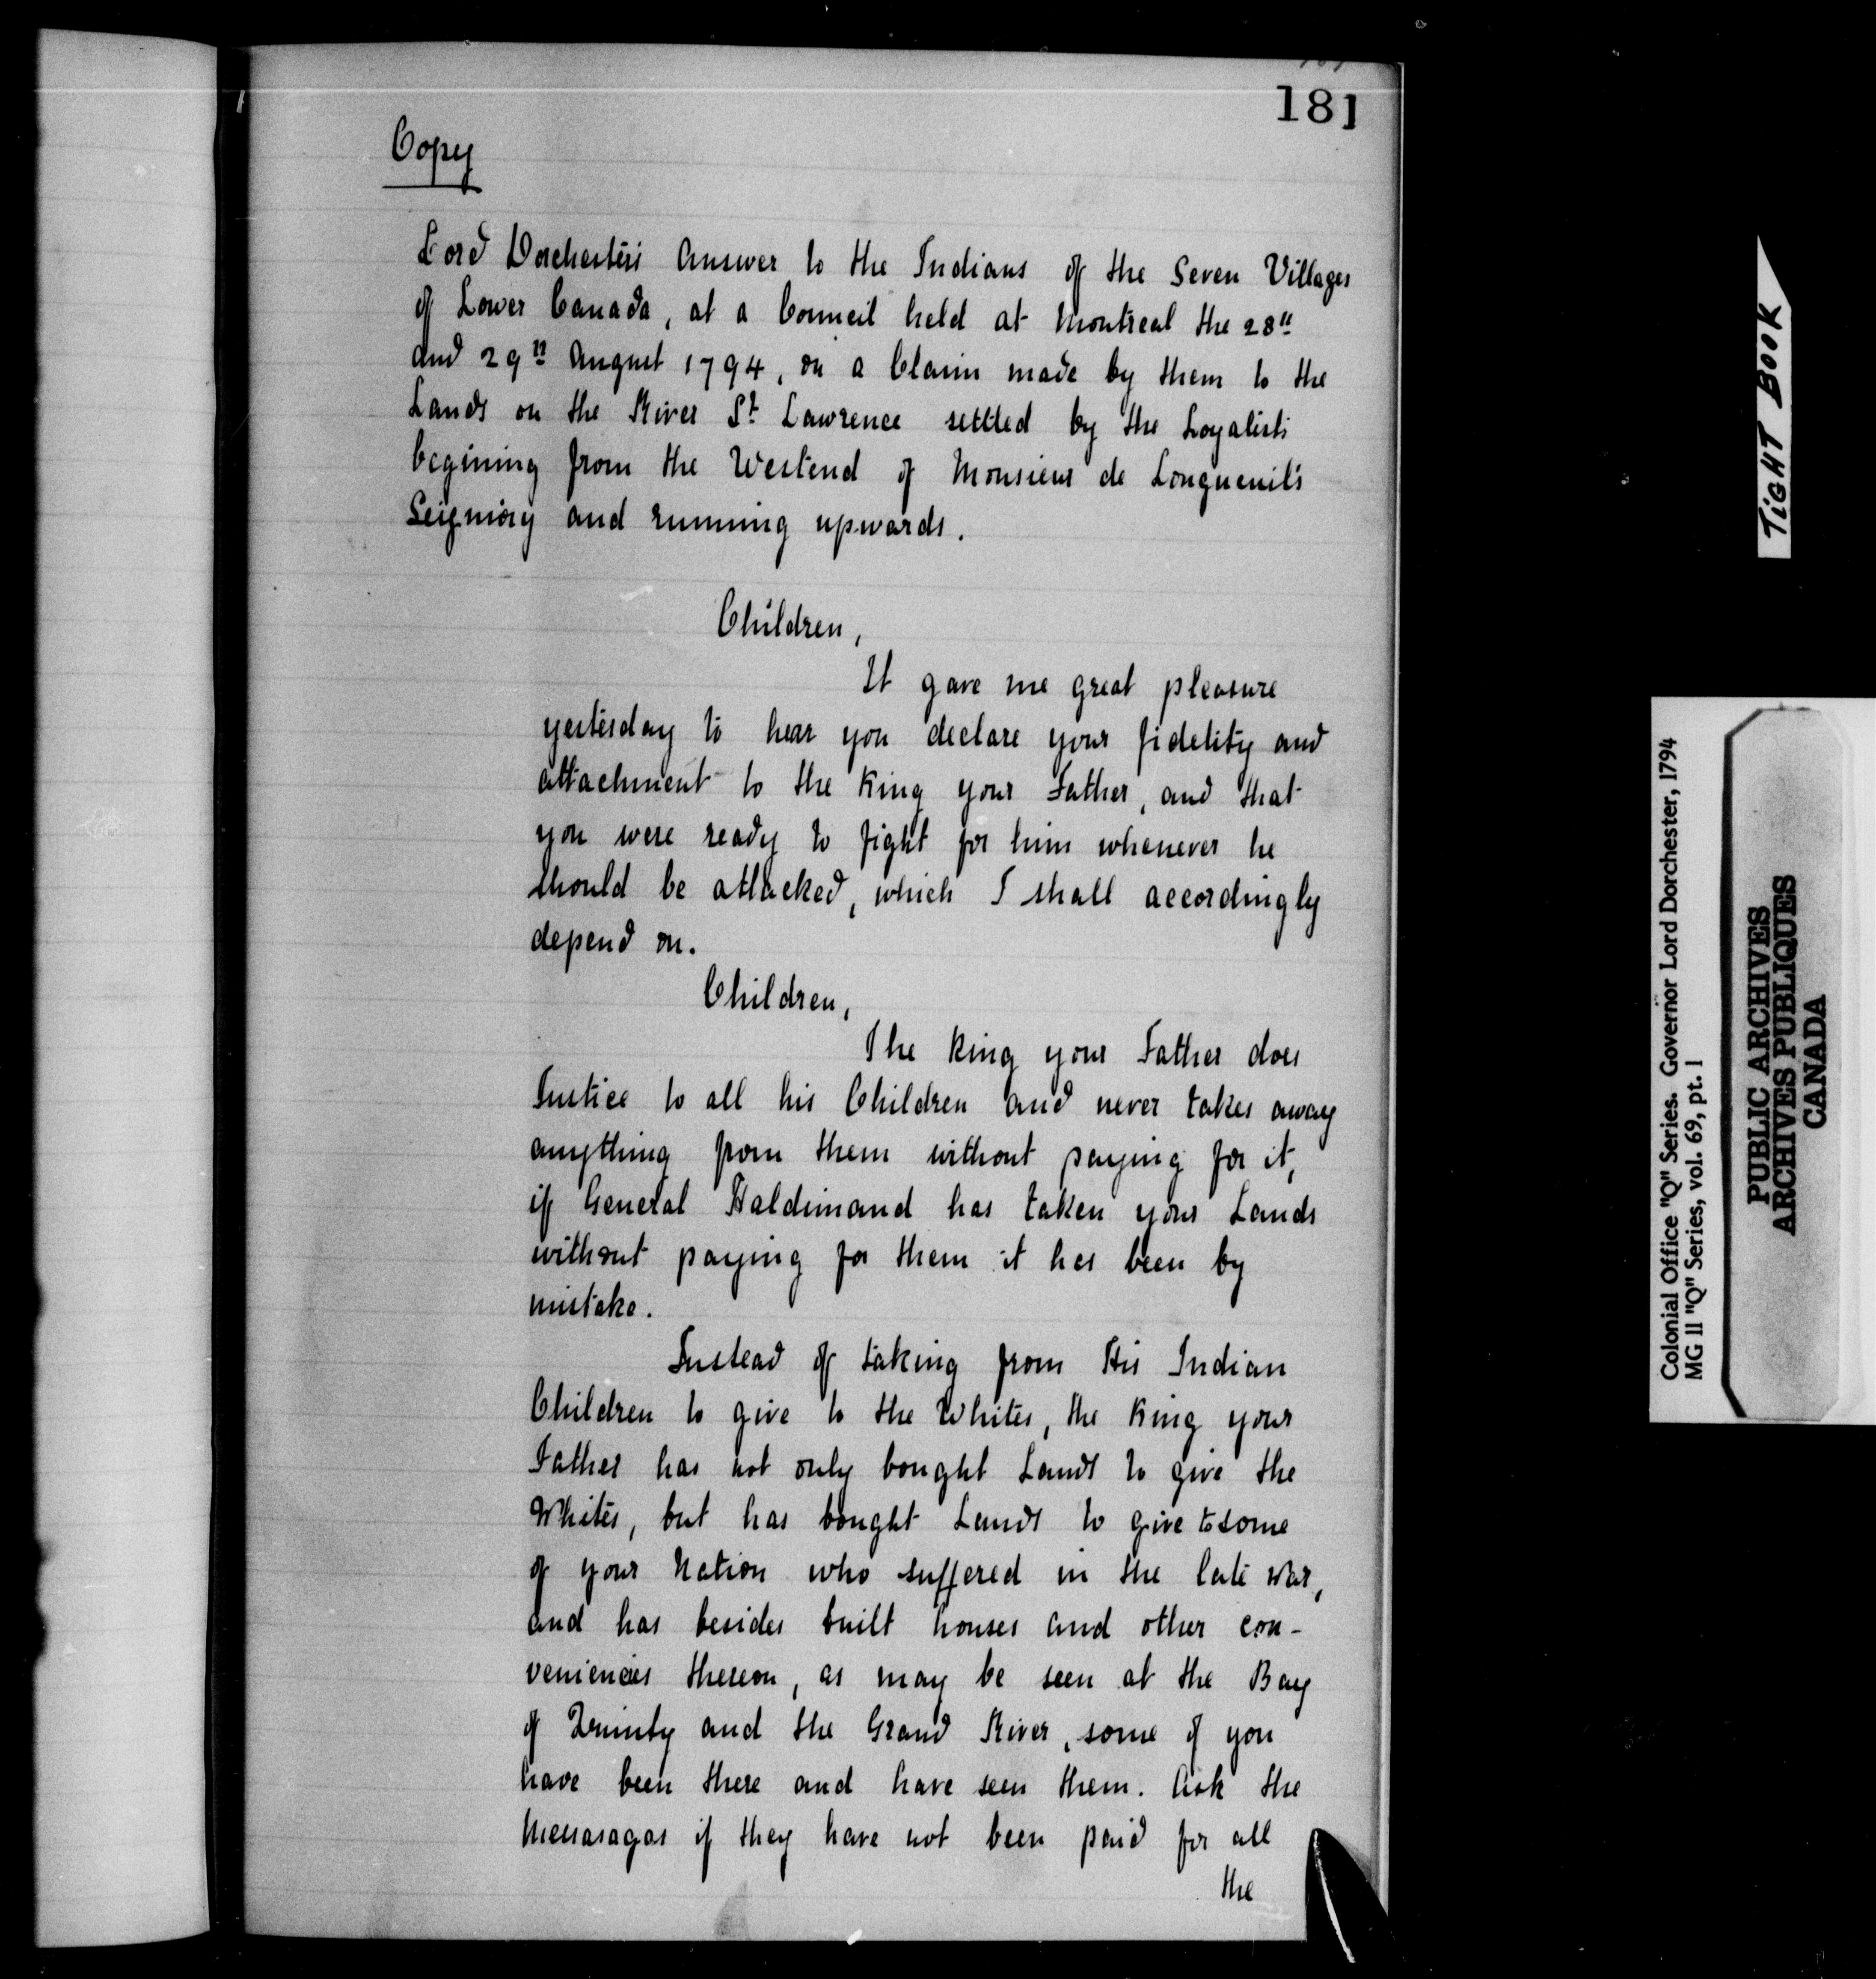 181
Copy
Lord Dorchester's Answer to the Indians of the Seven Villages
of Lower Canada, at a Council held at Montreal the 28th
and 29th August 1794, on a Claim made by them to the
Lands on the River St. Lawrence settled by the Loyalists
begining from the Westend of Monsieur de Longueuil's
Seigniory and running upwards.
Children,
It gave me great pleasure
yesterday to hear you declare your fidelity and
attachment to the King your Father, and that
you were ready to fight for him whenever he
should be attacked, which I shall accordingly
depend on.
Children,
The King your Father does
Justice to all his Children and never takes away
anything from them without paying for it,
if General Haldimand has taken your Lands
without paying for them it has been by
mistake.
Instead of taking from His Indian
Children to give to the Whites, the King your
Father has not only bought Lands to give the
Whites, but has bought Lands to give to some
of your Nation who suffered in the late war,
and has besides built houses and other con-
veniencies thereon, as may be seen at the Bay
of and the Grand River, some of you
have been there and have seen them. Ask the
Messasagas if they have not been paid for all
the
TIGHT BOOK
Colonial Office "Q" Series. Governor Lord Dorchester, 1794
MG 11 "Q" Series, vol. 69, pt. 1
PUBLIC ARCHIVES
ARCHIVES PUBLIQUES
CANADA